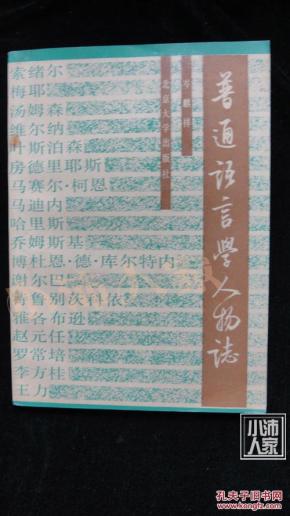 普通语言学人物誌
岑麒祥
北京大学出版社
索绪尔
梅耶
汤姆森
维尔纳
叶斯泊森
房德里耶斯
马赛尔·柯恩
马迪内
哈里斯
乔姆斯基
博杜恩·德·库尔特内
谢尔巴
葛鲁别茨科依
雅各布逊
赵元任
罗常培
李方桂
王力
小沛人家
孔夫子旧书网